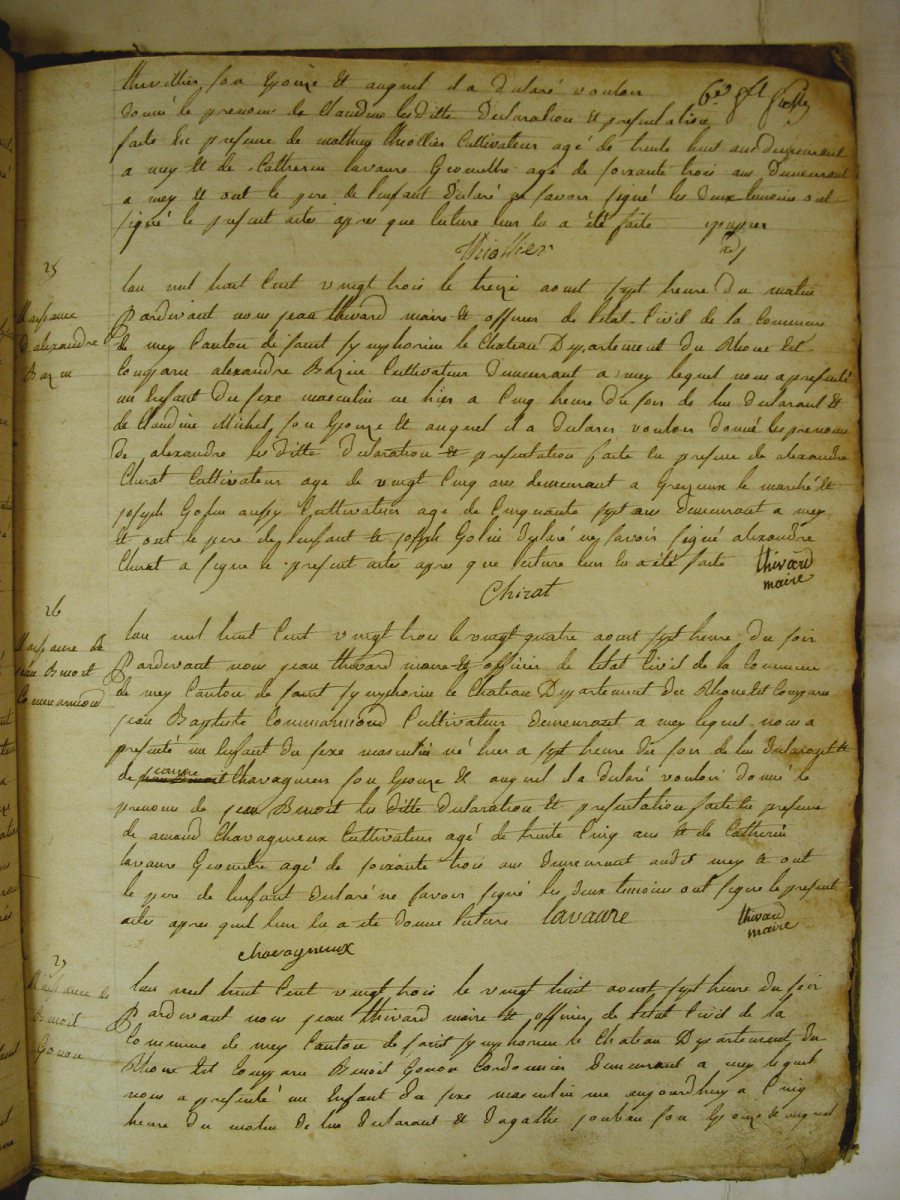 thiollier son Epouze et auquel il a declaré vouloir
donné le prenoms de Claudius les ditte declaration et presentation
faite en presence de mathieu thiollier Cultivateur agé de trente huit ans demeurant
a mey et de Catherin lavaure Geomettre agé de soixante trois ans demeurant
a mey et ont le pere de lenfant declaré ne savoir signé les deux temoins ont
signé le present actes apres que lecture leur lu a été faite
thiollier
25
Naissance
d'alexandre
Bazin
lan mil huit Cent vingt trois le treize aoust sept heure du matin
Pardevant nous jean thivard maire et officier de letat Civil de la Commune
de mey Canton de saint symphorien le Chateau Departement du Rhone Est
Comparu alexandre Bazin Cultivateur demeurant a mey lequel nous a presenté
un Enfant du sexe masculin ne hier a Cinq heure du soir de lui declarant et
de Claudine Michel son Epouze et auquel il a declarer vouloir donné les prenoms
de alexandre les ditte declaration et presentation faite en presence de alexandre
Chirat Cultivateur age de vingt Cinq ans demeurant a Grezieux le marché et
joseph Golin aussy Cultivateur age de Cinquante sept ans demeurant a mey
et ont le pere de lenfant et joseph Golin declaré ne savoir signé alexandre
Chirat a signe le present actes apres que lecture leur lu a été faite thivard
maire
Chirat
26
Naissance de
jean Benoit
Commarmond
lan mil huit Cent vingt trois le vingt quatre aoust sept heure du soir
Pardevant nous jean thivard maire et officier de letat Civil de la Commune
de mey Canton de saint symphorien le Chateau Departement du Rhone Est Comparu
jean Baptiste Commarmond Cultivateur demeurant a mey lequel nous a
presenté un Enfant du sexe masculin né hier a sept heure du soir de lui declarant et
de jeanne Chavagneux son Epouze et auquel il a declaré vouloir donné le
prenoms de jean Benoit les ditte declaration et presentation faite en presence
de Chavagnieux Cultivateur agé de trente Cinq ans et de Catherin
lavaure Geomettre agé de soixante trois ans demeurant audit mey et ont
le pere de lenfant declaré ne savoir signé les deux temoins ont signe le present
actes apres quil leur lu a ete donne lecture lavaure thivard
maire
chavagneux
27
Naissance de
Benoit
Gonon
lan mil huit Cent vingt trois le vingt huit aoust sept heure du soir
Pardevant nous jean thivard maire et officier de letat Civil de la
Commune de mey Canton de saint symphorien le Chateau Departement du
Rhone Est Comparu Benoit Gonon Cordonnier demeurant a mey lequel
nous a presenté un Enfant du sexe masculin ne aujourdhuy a Cinq
heure du matin de lui declarant et dagathe jouban son Epouze et auquel